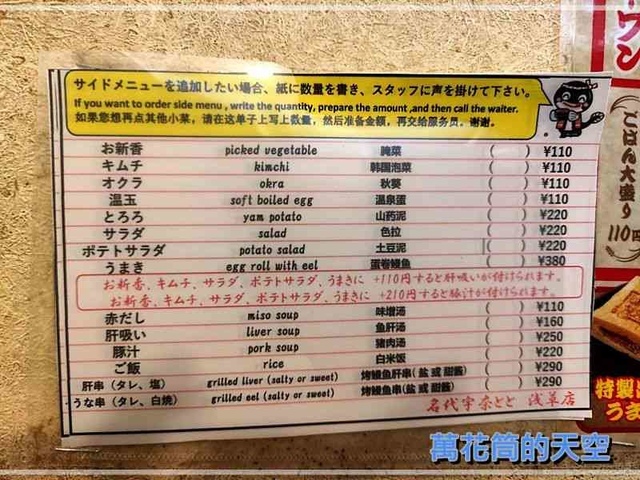 サイドメニューを追加したい場合、紙に数量を書き、スタッフに声を掛けて下さい。
If you want to order side menu , write the quantity, prepare the amount ,and then call the waiter.
如果您想再点其他小菜，请在这单子上写上数量，然后准备金额，再交给服务员。谢谢。
お新香 picked vegetable 腌菜 ( ) ¥110
キムチ kimchi 韩国泡菜 ( ) ¥110
オクラ okra 秋葵 ( ) ¥110
温玉 soft boiled egg 温泉蛋 ( ) ¥110
とろろ yam potato 山药泥 ( ) ¥220
サラダ salad 色拉 ( ) ¥220
ポテトサラダ potato salad 土豆泥 ( ) ¥220
うまき egg roll with eel 蛋卷鳗鱼 ( ) ¥380
お新香、キムチ、サラダ、ポテトサラダ、うまきに +110円すると肝吸いが付けられます。
お新香、キムチ、サラダ、ポテトサラダ、うまきに +210円すると豚汁が付けられます。
赤だし miso soup 味增汤 ( ) ¥110
肝吸い liver soup 鱼肝汤 ( ) ¥160
豚汁 pork soup 猪肉汤 ( ) ¥250
ご飯 rice 白米饭 ( ) ¥220
肝串（タレ、塩） grilled liver (salty or sweet) 烤鳗鱼肝串(盐 或 甜酱) ( ) ¥290
うな串（タレ、白焼） grilled eel (salty or sweet) 烤鳗鱼串(盐 或 甜酱) ( ) ¥290
名代宇奈とと 浅草店
ワン
ごはん大盛り
110円
特製
うま
萬花筒的天空